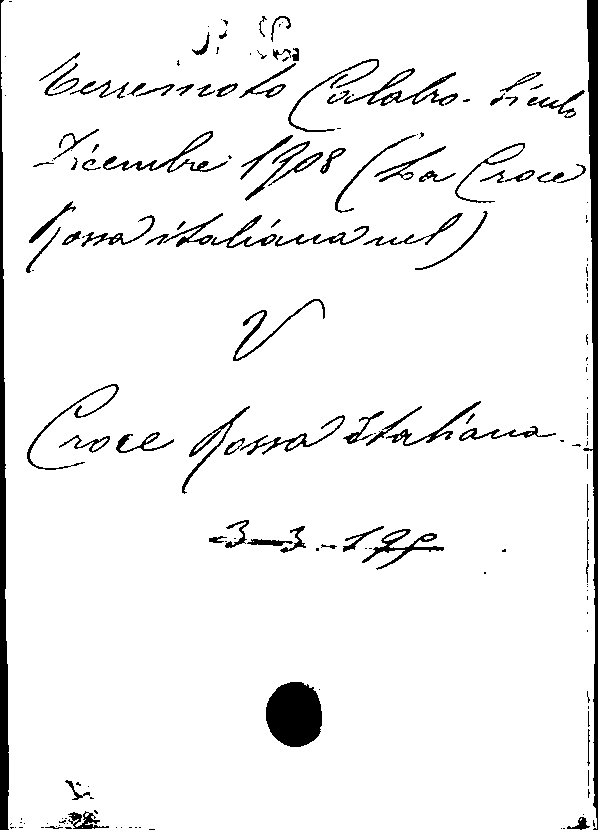 Terremoto Calabro-Siculo
Dicembre 1908 (La Croce
Rossa italiana nel)
V
Croce Rossa Italiana.
3-3-199